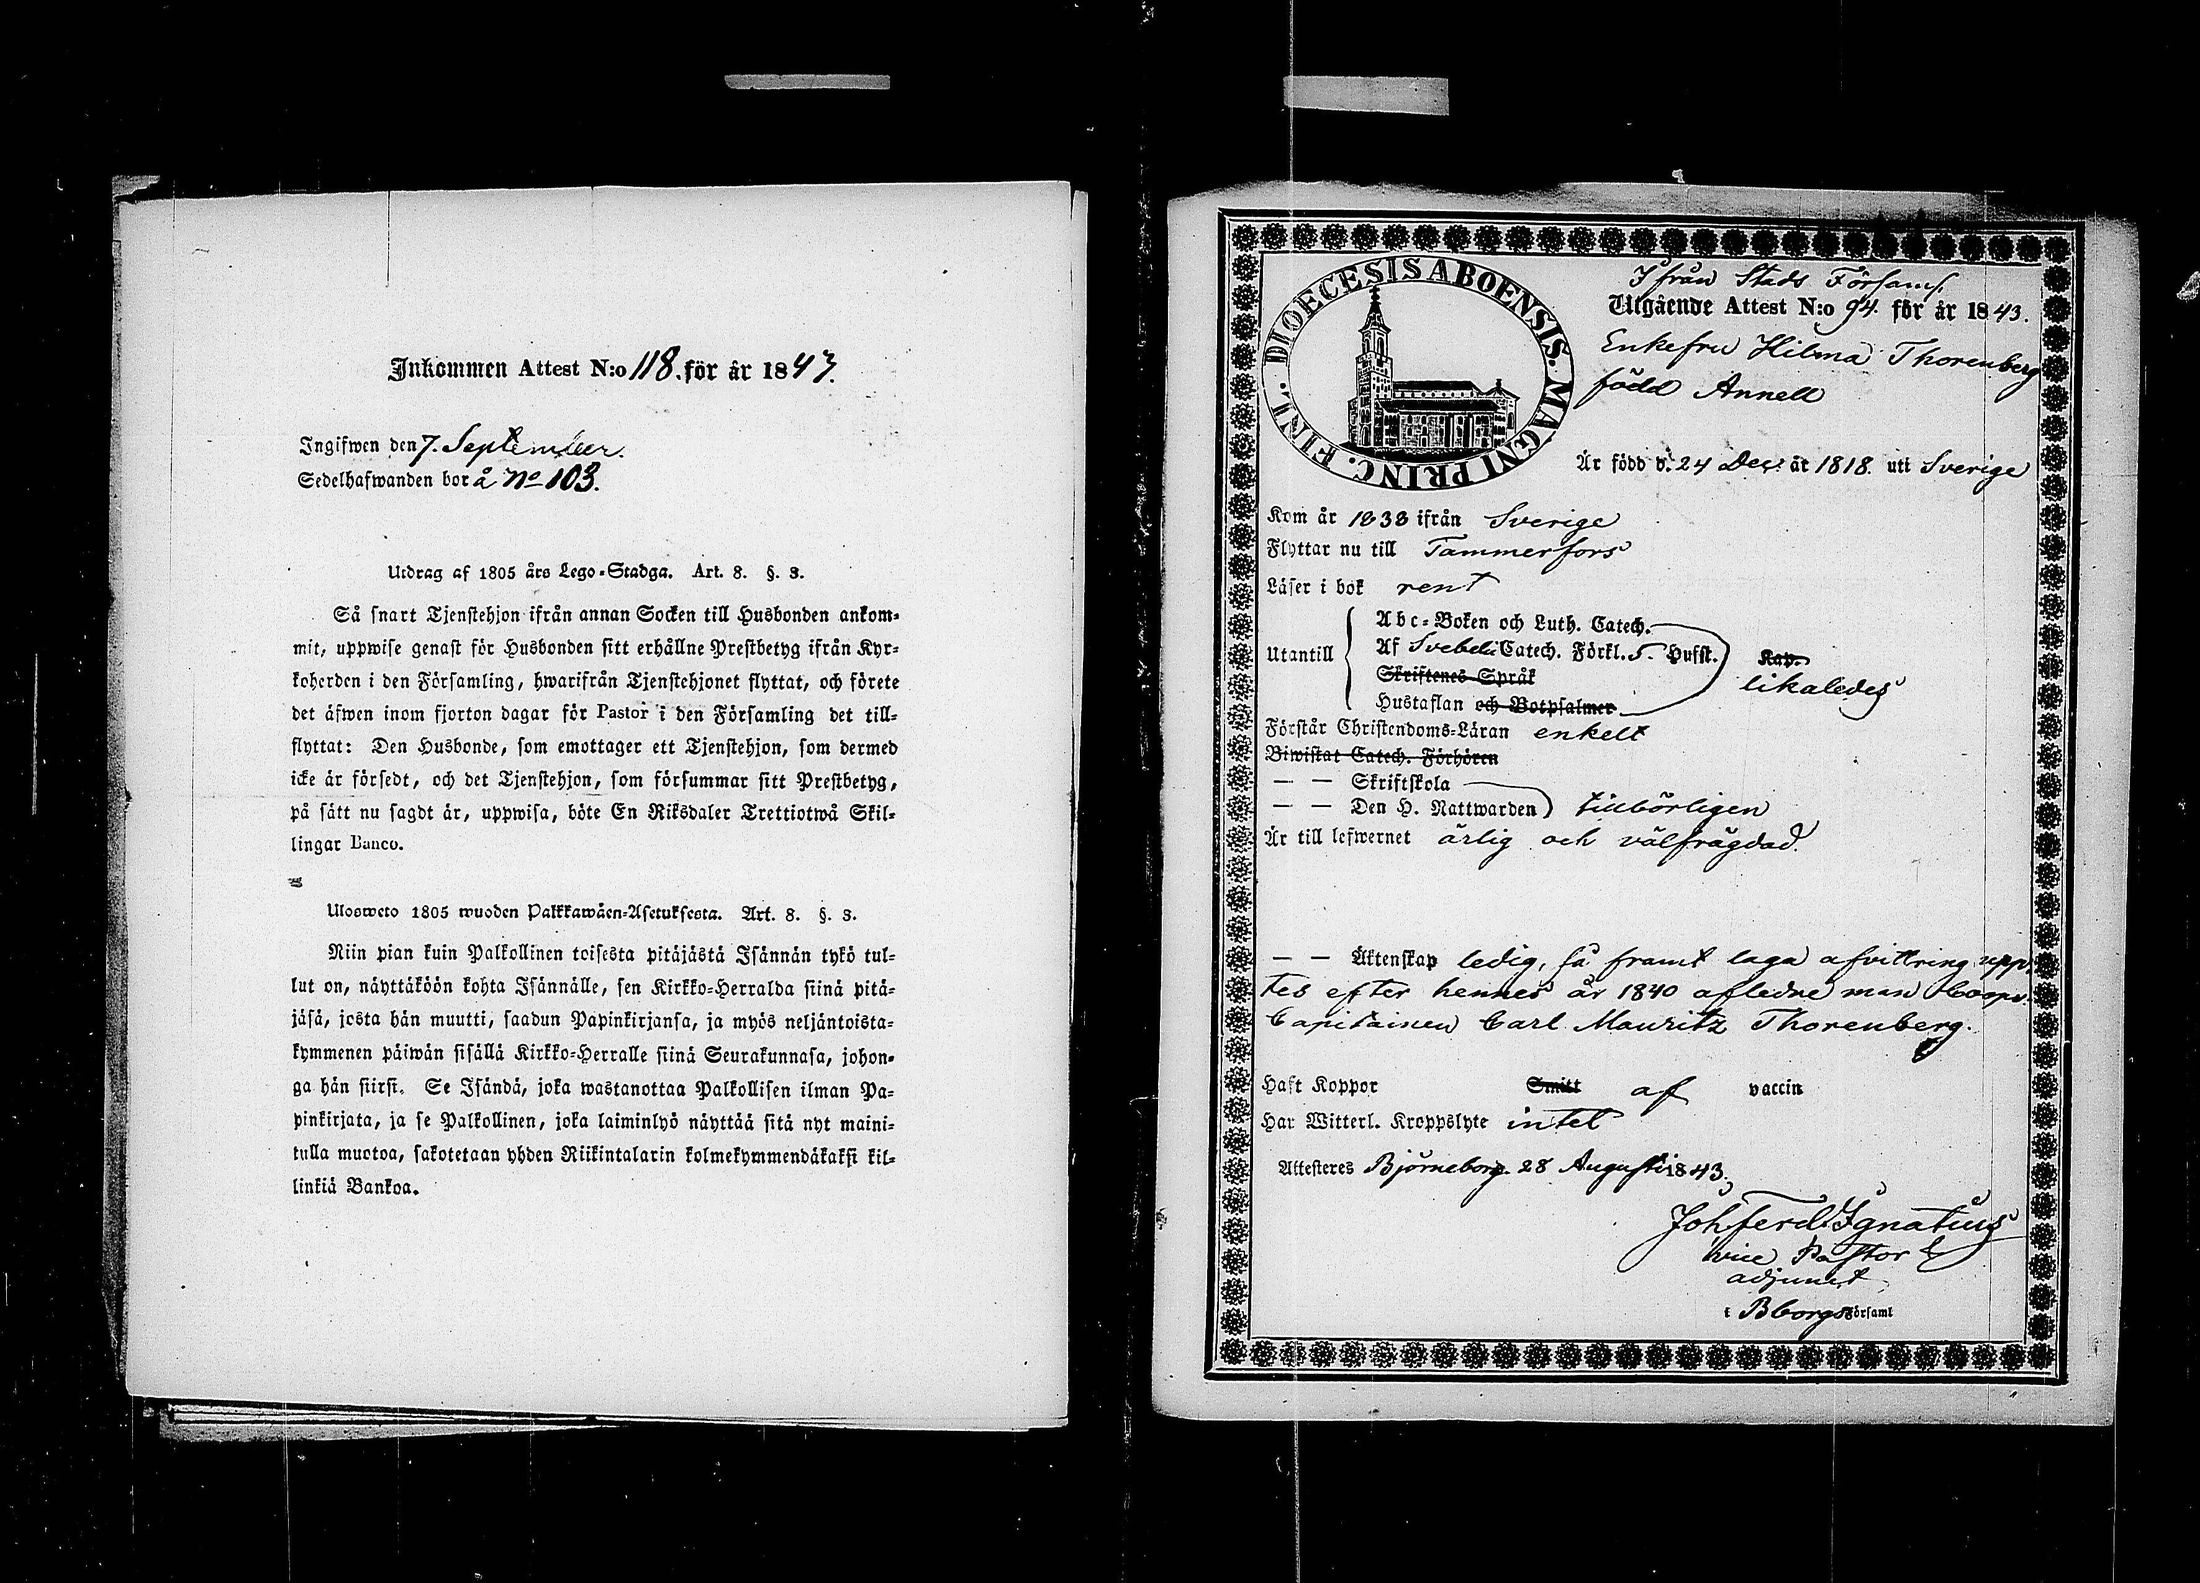 Inkommen Attest N:o 118. för år 1843.
Ingifwen den 7. September.
Sedelhafwanden bor å No 103.
Utdrag af 1805 års Lego-Stadga. Art. 8. §. 3.
Så snart Tjenstehjon ifrån annan Socken till Husbonden ankom-
mit, uppwise genast för Husbonden sitt erhållne Prestbetyg ifrån Kyr-
koherden i den Församling, hwarifrån Tjenstehjonet flyttat, och förete
det äfwen inom fjorton dagar för Pastor i den Församling det till-
flyttat: Den Husbonde, som emottager ett Tjenstehjon, som dermed
icke är försedt, och det Tjenstehjon, som försummar sitt Prestbetyg,
på sätt nu sagdt är, uppwisa, böte En Riksdaler Trettiotwå Skil-
lingar Banco.
Ulosweto 1805 wuoden Palkkawäen-Asetuksesta. Art. 8. §. 3.
Niin pian kuin Palkollinen toisesta pitäjästä Isännän tykö tul-
lut on, näyttäköön kohta Isännälle, sen Kirkko-Herralda siinä pitä-
jäsä, josta hän muutti, saadun Papinkirjansa, ja myös neljäntoista-
kymmenen päiwän sisällä Kirkko-Herralle siinä Seurakunnasa, johon-
ga hän siirsi. Se Isändä, joka wastanottaa Palkollisen ilman Pa-
pinkirjata, ja se Palkollinen, joka laiminlyö näyttää sitä nyt maini-
tulla muotoa, sakotetaan yhden Riikintalarin kolmekymmendäkaksi kil-
linkiä Bankoa.
DIOECESIS ABOENSIS. MAGNI PRINC. FINL.
Ifrån Stads Församl.
Utgående Attest N:o 94. för år 1843.
Enkefru Hilma Thorenberg
född Annell
Är född d. 24 Dec. år 1818. uti Sverige
Kom år 1838 ifrån Sverige
Flyttar nu till Tammerfors
Läser i bok rent
Utantill
Abc-Boken och Luth. Catech.
Af Svebelii Catech. Förkl. 5. Hufst. Kap.
Skriftenes Språk likaledes
Hustaflan och Botpsalmer
Förstår Christendoms-Läran enkelt
Biwistat Catech. Förhören
— — Skriftskola
— — Den H. Nattwarden tillbörligen
Är till lefwernet ärlig och välfrägdad.
— — Äktenskap ledig, så framt laga afvittring upp-
tes efter hennes år 1840 aflidne man Coopv.
Capitainen Carl Mauritz Thorenberg.
Haft Koppor Smitt af vaccin
Har Witterl. Kroppslyte intet
Attesteres Björneborg 28 Augusti 1843.
Joh Ferd Ignatius
vice Pastor &
adjunct
i Bborgs Församl